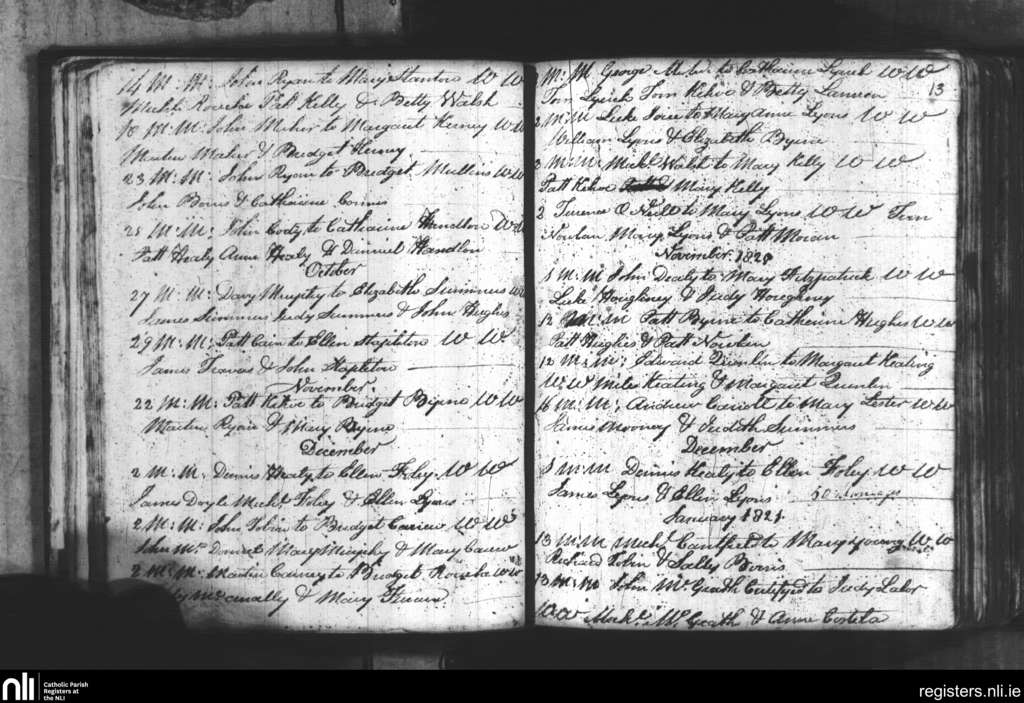 14 M: M: John Ryan to Mary Stanton W W
Michl. Rourke Patt Kelly & Betty Walsh
M: M: John Meher to Margaret Kerney W W
Martin Maher & Bridget Kerney
23 M: M: John Ryan to Bridget Mullins W W
John & Catharine
25 M: M: John Cody to Catharine Handlon W W
Patt Healy Anne Healy & Daniel Handlon
October
27 M: M: Davy Murphy to Elizabeth Summers W W
James Summers Judy Summers & John Hughes
29 M: M: Patt Cain to Ellen Stapleton W W
James & John Stapleton
November
22 M: M: Patt Kehoe to Bridget Byrne W W
Martin Ryan & Mary Byrne
December
2 M: M: Dennis Healy to Ellen Foley W W
James Doyle Michl. Foley & Ellen Lyons
2 M: M: John Tobin to Bridget Carew W W
John Mc Mary Murphy & Mary Carew
2 M: M: Martin to Bridget Rourke W W
& Mary
13
M: M George Meher to Catharine Lynch W W
Tom Lynch Tom Kehoe & Betty Lannon
2 M: M Luke to Mary Anne Lyons W W
William Lyons & Elizabeth Byrne
3 M: M: Michl. Walsh to Mary Kelly W W
Patt Kehoe & Mary Kelly
2 Terence O Neill to Mary Lyons W W Tom
Nowlan Mary Lyons & Patt Moran
November 1820
1 M: M John to Mary Fitzpatrick W W
Luke Houghney & Judy Houghney
12 M: M Patt Byrne to Catherine Hughes W W
Patt Hughes & Patt Nowlan
12 M: M: Edward Quinlin to Margaret Keating
W: W Miles Keating & Margaret Quinlin
16 M: M: Andrew to Mary Lester W W
James Mooney & Judith Summers
December
1 M: M Dennis Healy to Ellen Foley W W
James Lyons & Ellen Lyons
January 1821
13 M: M Michl. Cantfield to Mary Young W W
Richard Tobin & Sally
13 M: M John Mc Grath to Judy Lalor
W W Michl. Mc Grath & Anne
nli
Catholic Parish
Registers at
the NLI
registers.nli.ie